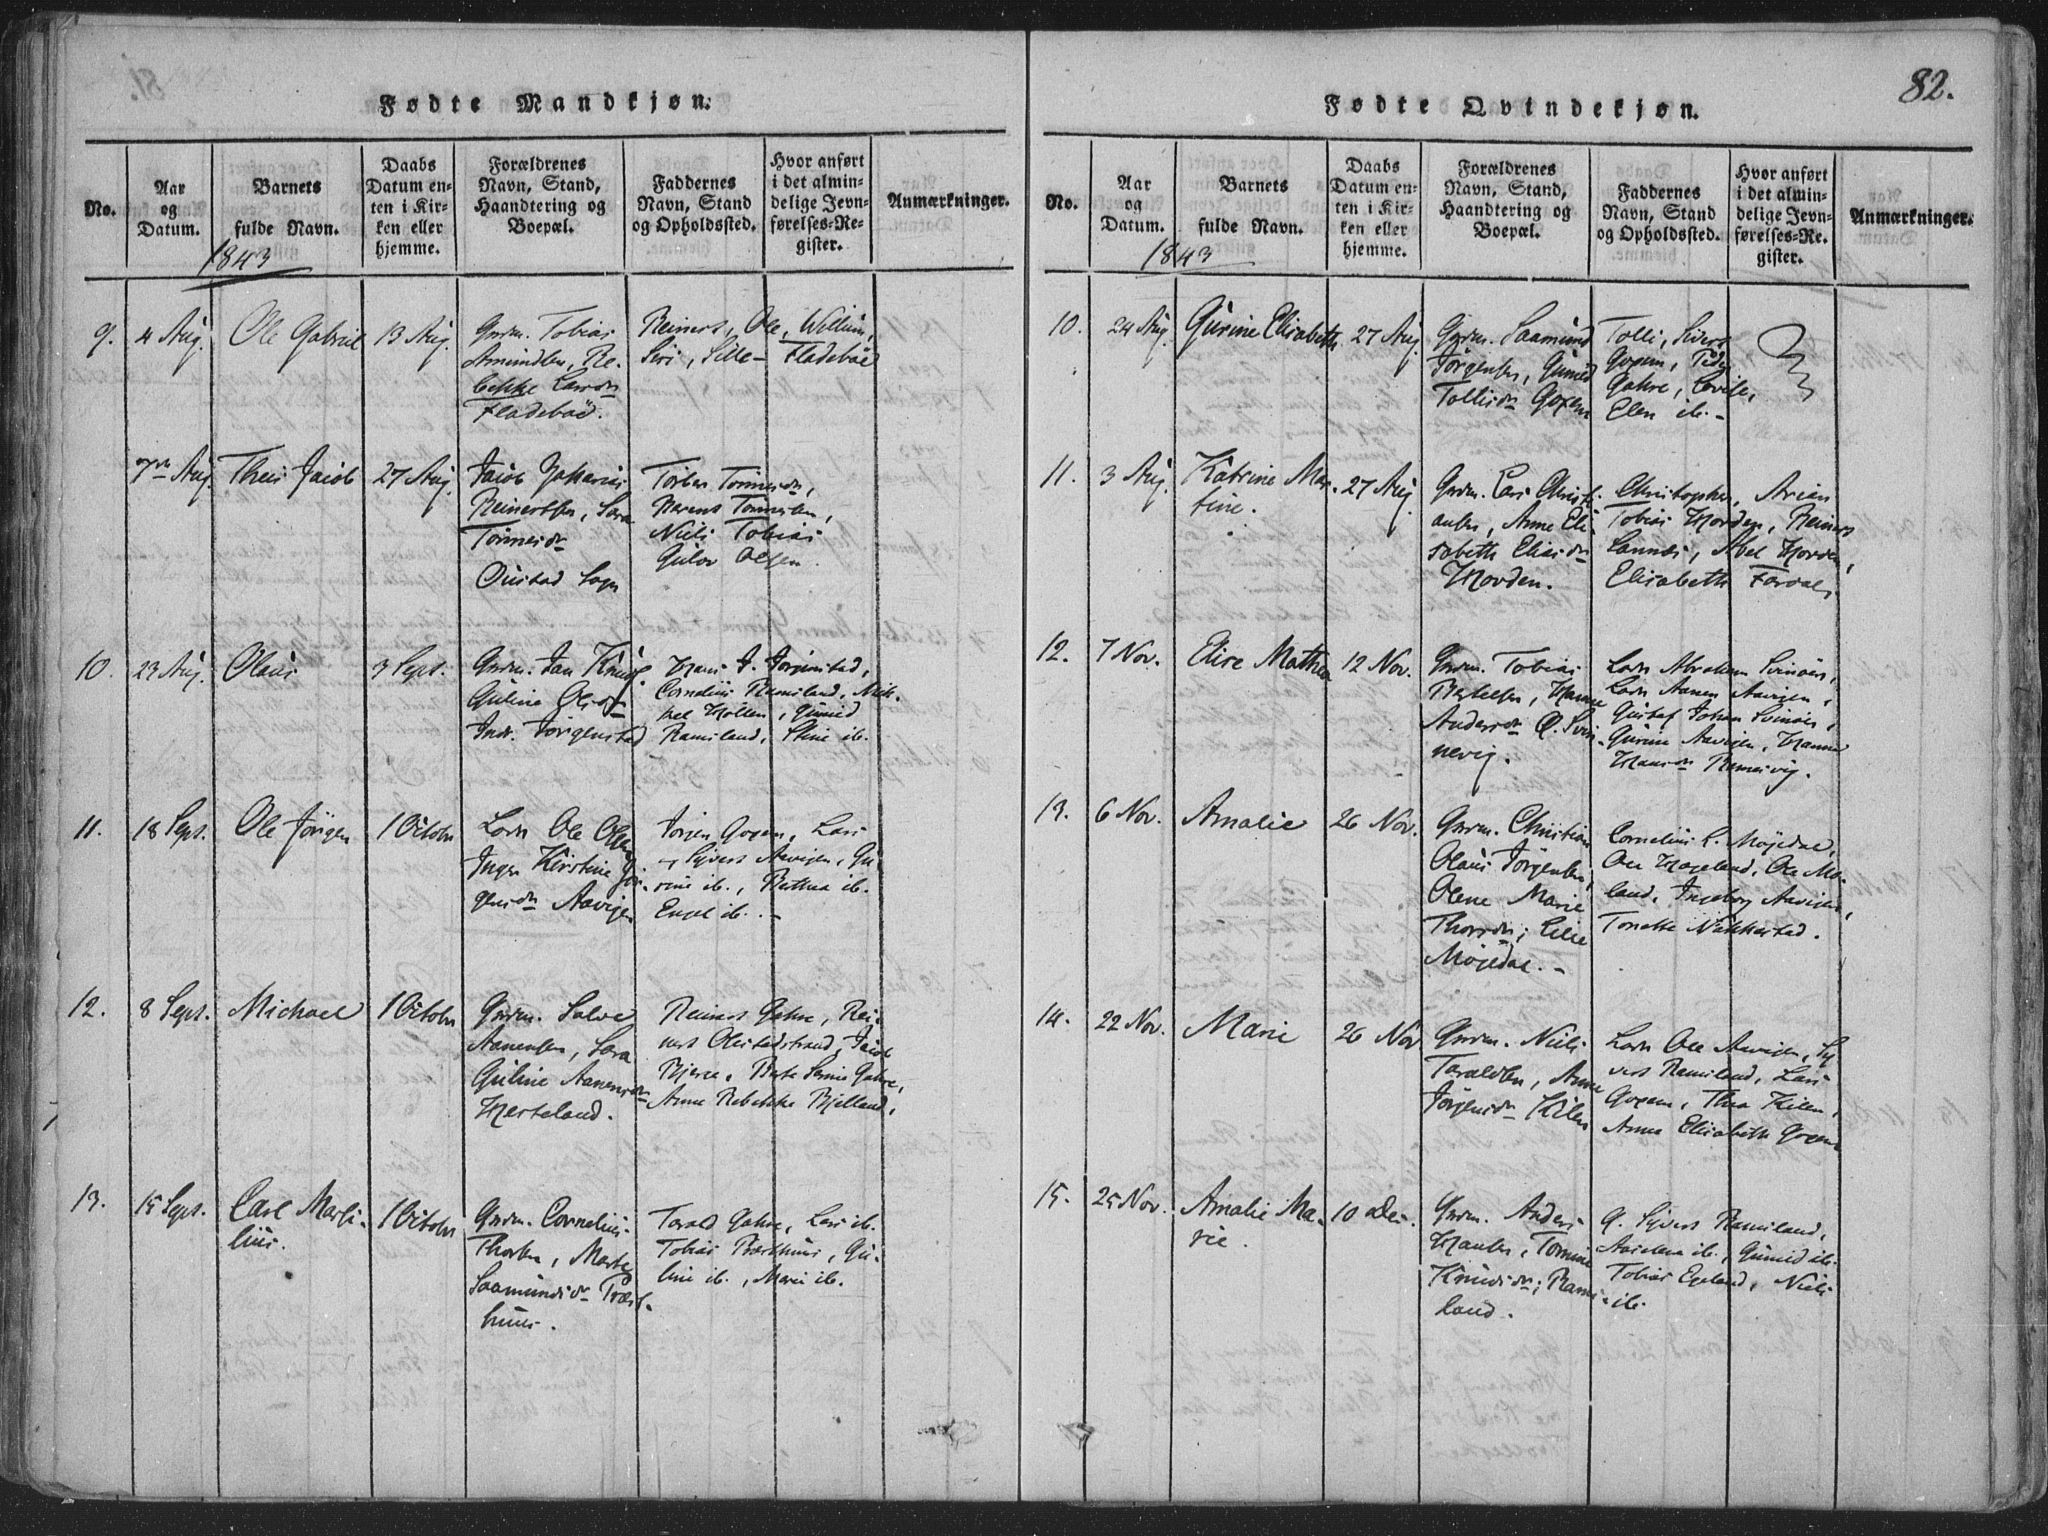 82.
Fødte Mandkjøn.
No.
Aar
og
Datum.
Barnets
fulde Navn.
Daabs
Datum en-
ten i Kir-
ken eller
hjemme.
Forældrenes
Navn, Stand,
Haandtering og
Boepæl.
Faddernes
Navn, Stand
og Opholdssted.
Hvor anført
i det almin-
delige Jevn-
førelses-Re-
gister.
Anmærkninger.
1843
9.
4 Aug.
Ole Gabriel
13 Aug.
Grdm. Tobias
Amundsen, Re-
bekke Larsdr
Fladeboe.
Reinert, Ole, Willum,
Siri, Sille - Fladeboe
7de Aug.
Theis Jacob
27 Aug.
Jacob Zakarias
Reinertsen, Sara
Tönnesdr
Sogn
Torber Tönnesdr,
Berent Tönnesen,
Niels Tobias
Gulov Olsen.
10.
23 Aug.
Olaus
3 Sept.
Grdm. Jan Knuds.
Guline Olsdr
Indr. Jörgenstad
Hans J. Jörgenstad,
Cornelius Ramsland, Mik-
kel Hollen, Gunild
Ramsland, Stine ib.
11.
18 Sept.
Ole Jörgen
1 Octobr
Lods Ole Olsen
Inger Kirstine Jör-
gensdr Aavigen
Jörgen Goxem, Lars
, Syvert Aavigen, Gu-
rine ib., Berthea ib.
Engel ib. -
12.
8 Sept.
Michael
1 Octobr
Grdm. Salve
Aanensen, Sara
Guline Aanensdr
Herteland.
Reinert Gahre, Rei-
nert Olestadstrand, Jacob
Bjerce, Berte Serine Gahre,
Anne Rebekke Bjelland.
13.
15 Sept.
Carl Marti-
lius.
1 Octobr
Grdm. Cornelius
Thorsen, Marte
Saamundsdr Præst-
huus.
Torald Gahre, Lars ib.
Tobias Præsthuus, Gu-
line ib., Maria ib.
Fødte Qvindekjøn.
No.
Aar
og
Datum.
Barnets
fulde Navn.
Daabs
Datum en-
ten i Kir-
ken eller
hjemme.
Forældrenes
Navn, Stand,
Haandtering og
Boepæl.
Faddernes
Navn, Stand
og Opholdssted.
Hvor anført
i det almin-
delige Jevn-
førelses-Re-
gister.
Anmærkninger.
1843
10.
24 Aug.
Gurine Elisabeth
27 Aug.
Grdm. Saamund
Jörgensen, Gunild
Tollisdr Goxem
Tolli, Sivert
Goxem,
Gahre, Lovise,
Elen ib. -
11.
3 Aug.
Katrine Mar-
tine.
27 Aug.
Grdm. Lars Christi-
ansen, Anne Eli-
sabeth Eliasdr
Hovden.
Christopher, Arian
Tobias Hovden, Reinert
Lannes, Abel Hovden,
Elisabeth Fardal.
12.
7 Nov.
Elise Mathea
12 Nov.
Grdm. Tobias
Bertelsen, Hanne
Andersdr Ö. Svin-
nevig.
Lods Abraham Svinöer,
Lods Aanen Aavigen,
Gustaf Johan Svinöer,
Gurine Aavigen, Hanna
Hansdr Remesvig.
13.
6 Nov.
Amalie
26 Nov.
Grdm. Christian
Olaus Jörgensen,
Olene Marie
Thorsdr; Lille
Möjedal. -
Cornelius L. Möjedal,
Ole Hageland, Ole Mo-
land, Ingeborg Aavigen,
Tonette Nökkestad.
14.
22 Nov.
Marie
26 Nov
Grdm. Niels
Taraldsen, Anne
Jörgensdr Kilen
Lods Ole Aavigen, Sy-
vert Ramsland, Lars
Goxem, Thea Kilen,
Anne Elisabeth Goxem
15.
25 Nov.
Amalie Ma-
rie.
10 Dec.
Grdm. Anders
Hansen, Tomine
Knudsdr; Rams-
land.
G. Syvert Ramsland,
Aaselena ib., Gunild ib.
Tobias Egeland, Niels
ib.